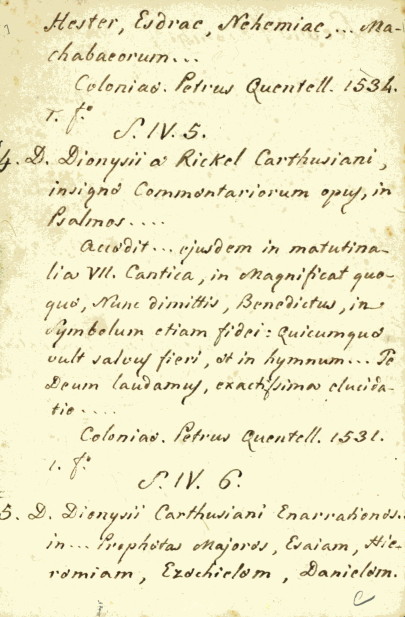 Hester, Esdrae, Nehemiae, ... Ma-
chabaeorum ...
Coloniae. Petrus Quentell. 1534.
1. fº
S. IV. 5.
4. D. Dionysii a Rickel Carthusiani,
insigne Commentariorum opus, in
Psalmos ....
Accedit ... ejusdem in matutina-
lia VII. Cantica, in Magnificat quo-
que, Nunc dimittis, Benedictus, in
Symbolum etiam fidei: Quicumque
vult salvus fieri, et in hymnum ... Te
Deum laudamus, exactissima elucida-
tio ....
Coloniae. Petrus Quentell. 1531.
1. fº
S. IV. 6.
5. D. Dionysii Carthusiani Enarrationes..
in ... Prophetas Majores, Esaiam, Hie-
remiam, Ezechielem, Danielem.